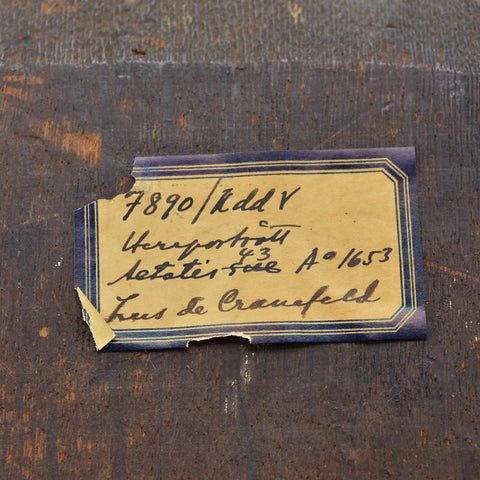 7890/KddV
Herreporträtt
Aetatis sue 43 A° 1653
Lus de Cranefeld